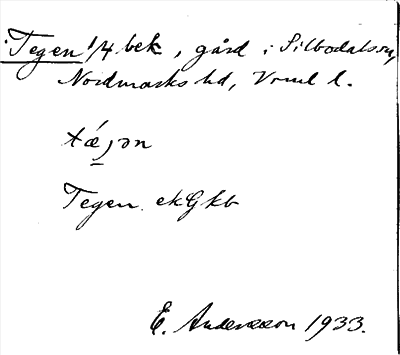 Tegen 1/4 bek, gård i Silbodals sn,
Nordmarks hd, Vrml l.
tǽȷən
Tegen ekGkb
E. Andersson 1933.